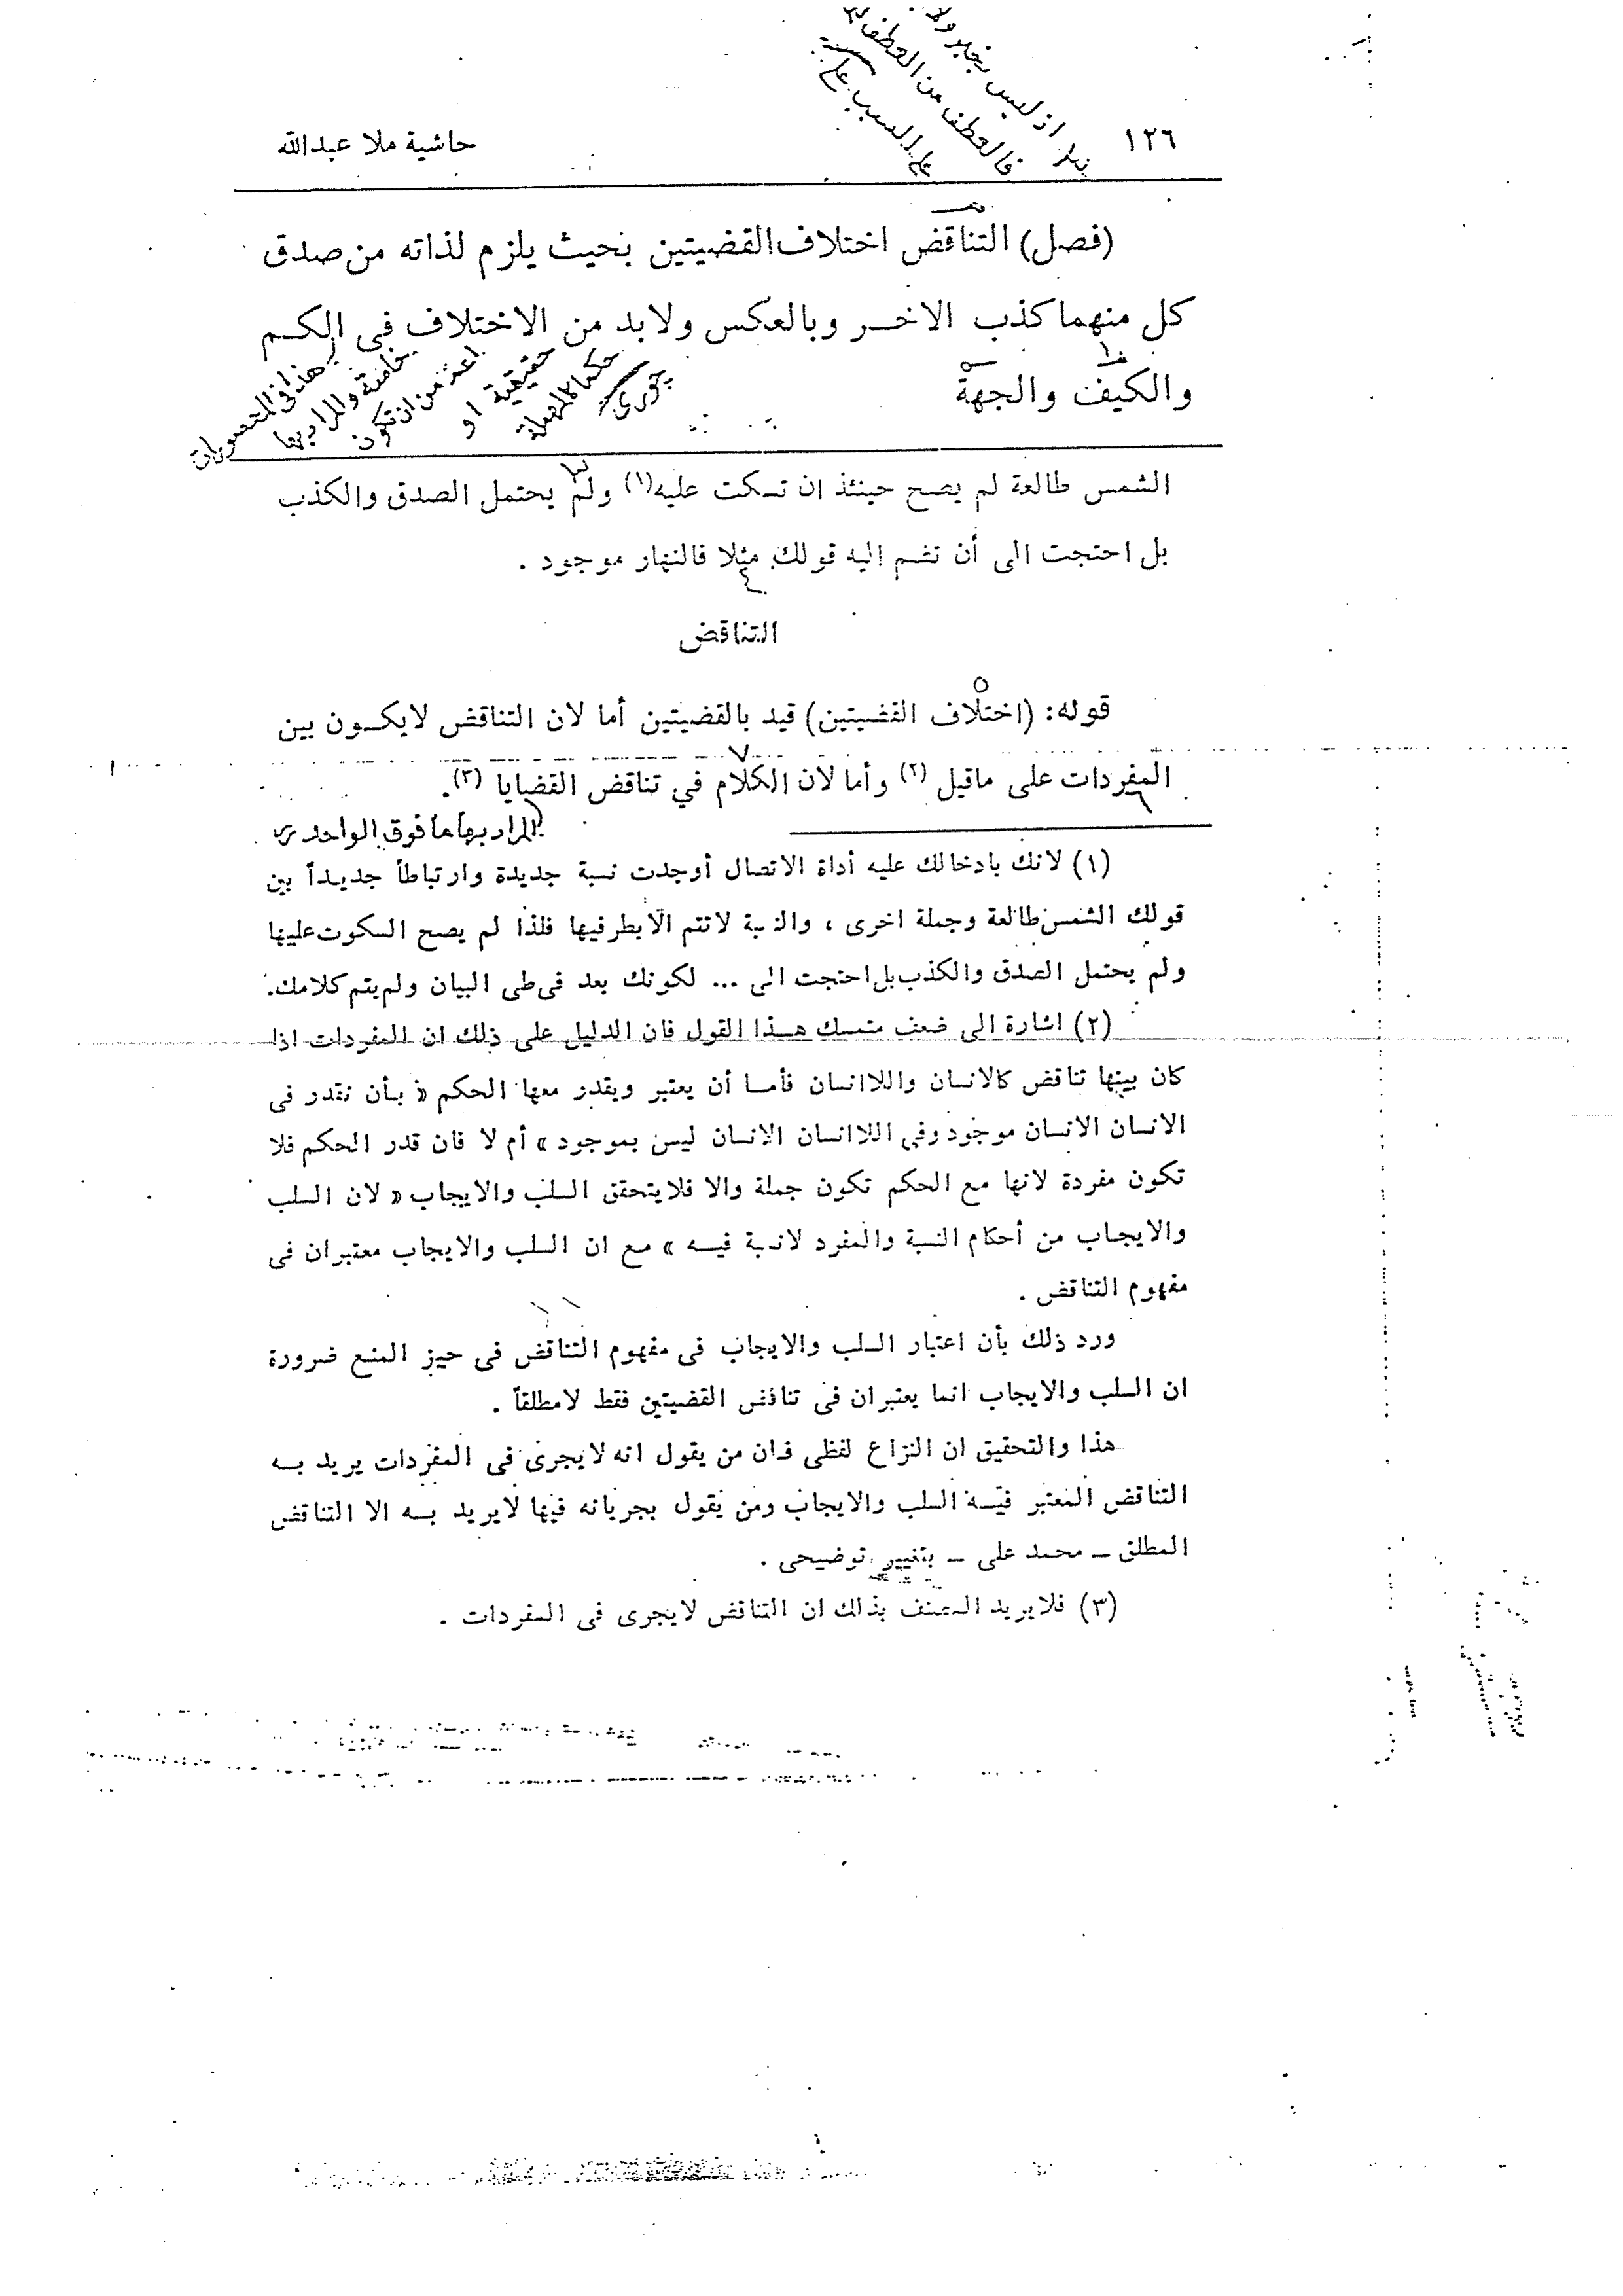 ١٢٦
حاشية ملا عبدالله
(فصل) التناقض اختلاف القضيتين بحيث يلزم لذاته من صدق
كل منهما كذب الاخـر وبالعكس ولابد من الاختلاف فى الكـم
والكيف والجهة
الشمس طالعة لم يصح حينئذ ان تسكت عليه(١) ولم يحتمل الصدق والكذب
بل احتجت الى أن تضم اليه قولك مثلا فالنهار موجود .
التناقض
قوله: (اختلاف القضيتين) قيد بالقضيتين أما لان التناقض لايكـون بين
المفردات على ماقيل (٢) وأما لان الكلام في تناقض القضايا (٣).
المراد بها ما فوق الواحد
(١) لانك بادخالك عليه أداة الاتصال أوجدت نسبة جديدة وارتباطاً جديـداً بين
قولك الشمس طالعة وجملة اخرى ، والنسبة لاتتم الابطرفيها فلذا لم يصح السكوت عليها
ولم يحتمل الصدق والكذب بل احتجت الى ... لكونك بعد فى طى البيان ولم يتم كلامك.
(٢) اشارة الى ضعف متمسك هـذا القول فان الدليل على ذلك ان المفردات اذا
كان بينها تناقض كالانسان واللاانسان فأمـا أن يعتبر ويقدر معها الحكم « بـأن نقدر فى
الانسان الانسان موجود وفى اللاانسان الانسان ليس بموجود » أم لا فان قدر الحكم فلا
تكون مفردة لانها مع الحكم تكون جملة والا فلايتحقق السلب والايجاب « لان السلب
والايجـاب من أحكام النسبة والمفرد لانسبة فيـه » مـع ان السلب والايجاب معتبران فى
مفهوم التناقض .
ورد ذلك بأن اعتبار السلب والايجاب فى مفهوم التناقض فى حيز المنع ضرورة
ان السلب والايجاب انما يعتبران فى تناقض القضيتين فقط لامطلقاً .
هذا والتحقيق ان النزاع لفظى فـان من يقول انه لايجرى فى المفردات يريد بـه
التناقض المعتبر فيـه السلب والايجاب ومن يقول بجريانه فيها لايريد بـه الا التناقض
المطلق ــ محمد على ــ بتغيير توضيحى .
(٣) فلايريد المصنف بذلك ان التناقض لايجرى فى المفردات .